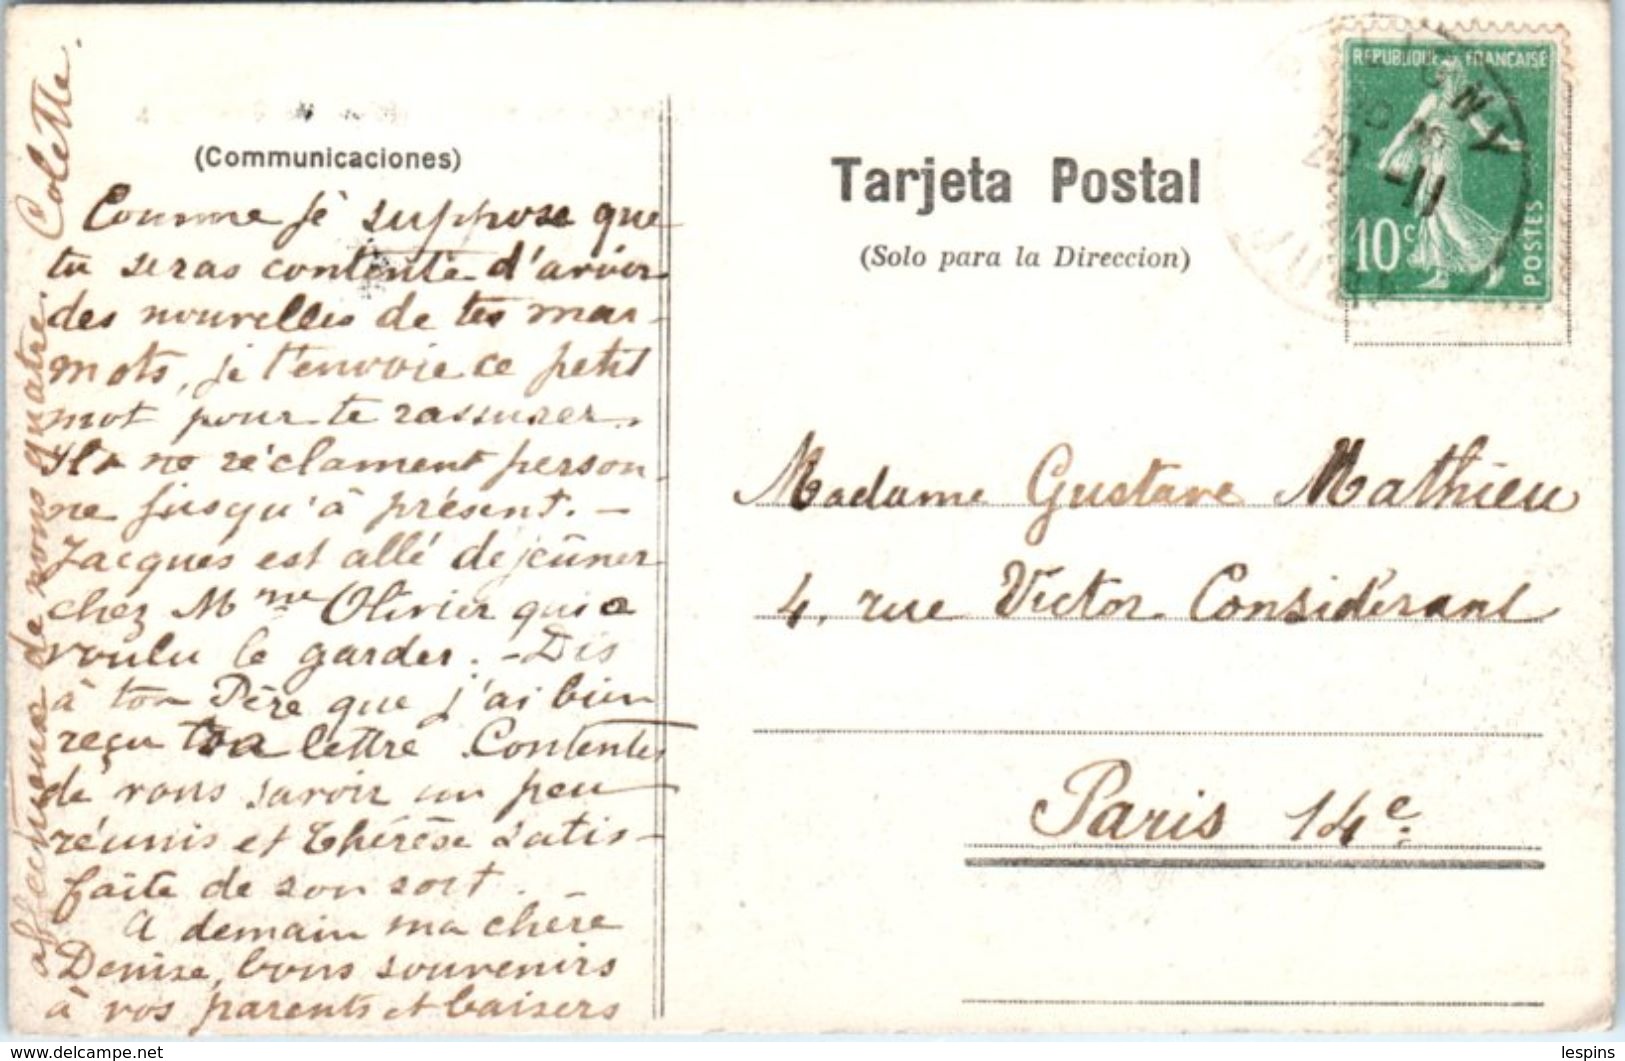 (Communicaciones)
Comme je suppose que
tu seras contente d'avoir
des nouvelles de tes mar-
mots, je t'envoie ce petit
mot pour te rassurer.
Ils ne réclament person-
ne jusqu'à présent. -
Jacques est allé déjeûner
chez Mme Olivier qui a
voulu le garder. - Dis
à ton Père que j'ai bien
reçu sa lettre. Contentes
de vous savoir un peu
réunis et Thérèse satis-
faite de son sort. -
A demain ma chère
Denise, bons souvenirs
à vos parents et baisers
affectueux de nous quatre. Colette.
Tarjeta Postal
(Solo para la Direccion)
REPUBLIQUE FRANÇAISE
10c
POSTES
-11
Madame Gustave Mathieu
4, rue Victor Considérant
Paris 14e.
lespins